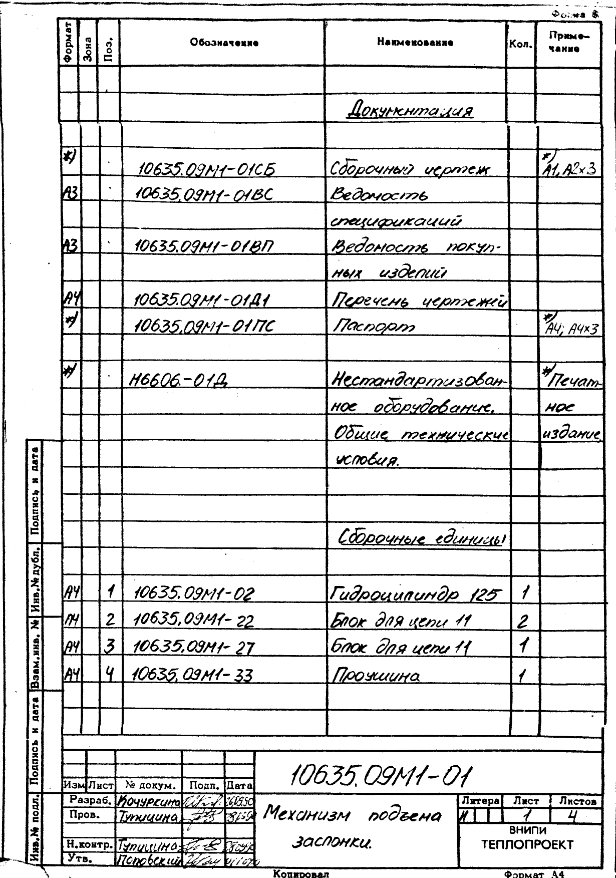 Форма 8
Формат Зона Поз. Обозначение Наименование Кол. Приме-
чание
Документация
*) 10635.09М1-01СБ Сборочный чертеж *) А1, А2×3
А3 10635.09М1-01ВС Ведомость
спецификаций
А3 10635.09М1-01ВП Ведомость покуп-
ных изделий
А4 10635.09М1-01Д1 Перечень чертежей
*) 10635.09М1-01ПС Паспорт *) А4; А4×3
*) Н6606.-01Д Нестандартизован- *) Печат-
ное оборудование. ное
Общие технические издание
условия.
Сборочные единицы
А4 1 10635.09М1-02 Гидроцилиндр 125 1
А4 2 10635.09М1-22 Блок для цепи 11 2
А4 3 10635.09М1-27 Блок для цепи 11 1
А4 4 10635.09М1-33 Проушина 1
Инв.№ подл. Подпись и дата Взам.инв. № Инв.№ дубл. Подпись и дата
10635.09М1-01
Изм Лист № докум. Подп. Дата
Разраб. Кочуркина
Пров. Тупицина
Н.контр. Тупицина
Утв. Поповский
Механизм подъема
заслонки.
Литера Лист Листов
И 1 4
ВНИПИ
ТЕПЛОПРОЕКТ
Копировал Формат А4